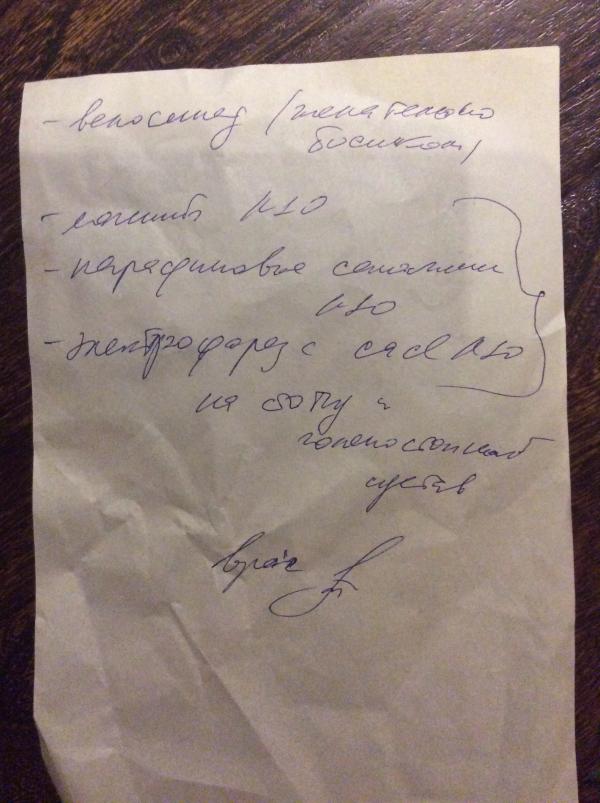 - велосипед /желательно
босиком/
- магнит N10
- парафиновые сапожки
N10
- электрофорез с CaCl N10
на стопу и
голеностопный
сустав
врач